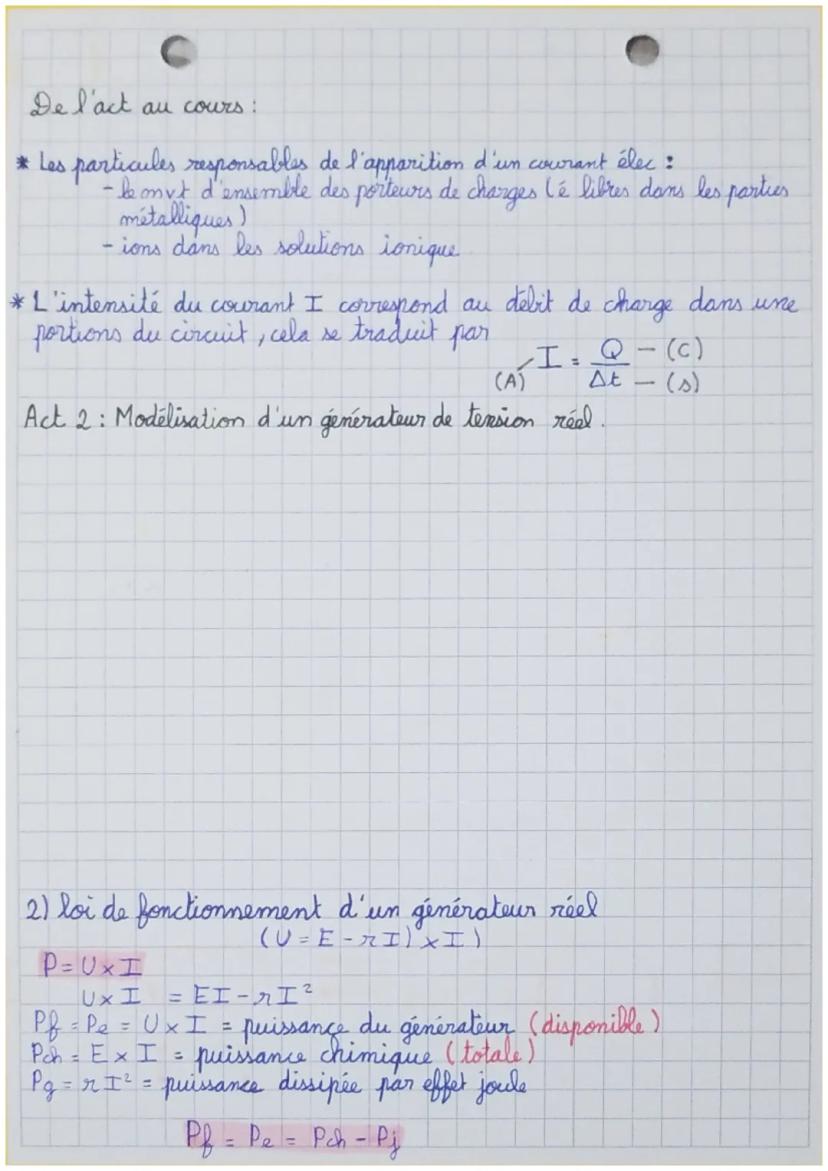 De l'act au cours :
* Les particules responsables de l'apparition d'un courant élec :
- le mvt d'ensemble des porteurs de charges (é libres dans les parties
métalliques)
- ions dans les solutions ionique
* L'intensité du courant I correspond au débit de charge dans une
portions du circuit, cela se traduit par
(A) I = Q/Δt — (C) — (s)
Act 2 : Modélisation d'un générateur de tension réel.
2) loi de fonctionnement d'un générateur réel
(U = E - rI) × I)
P = U × I
U × I = EI - rI²
Pf = Pe = U × I = puissance du générateur (disponible)
Pch = E × I = puissance chimique (totale)
Pg = rI² = puissance dissipée par effet joule
Pf = Pe = Pch - Pj